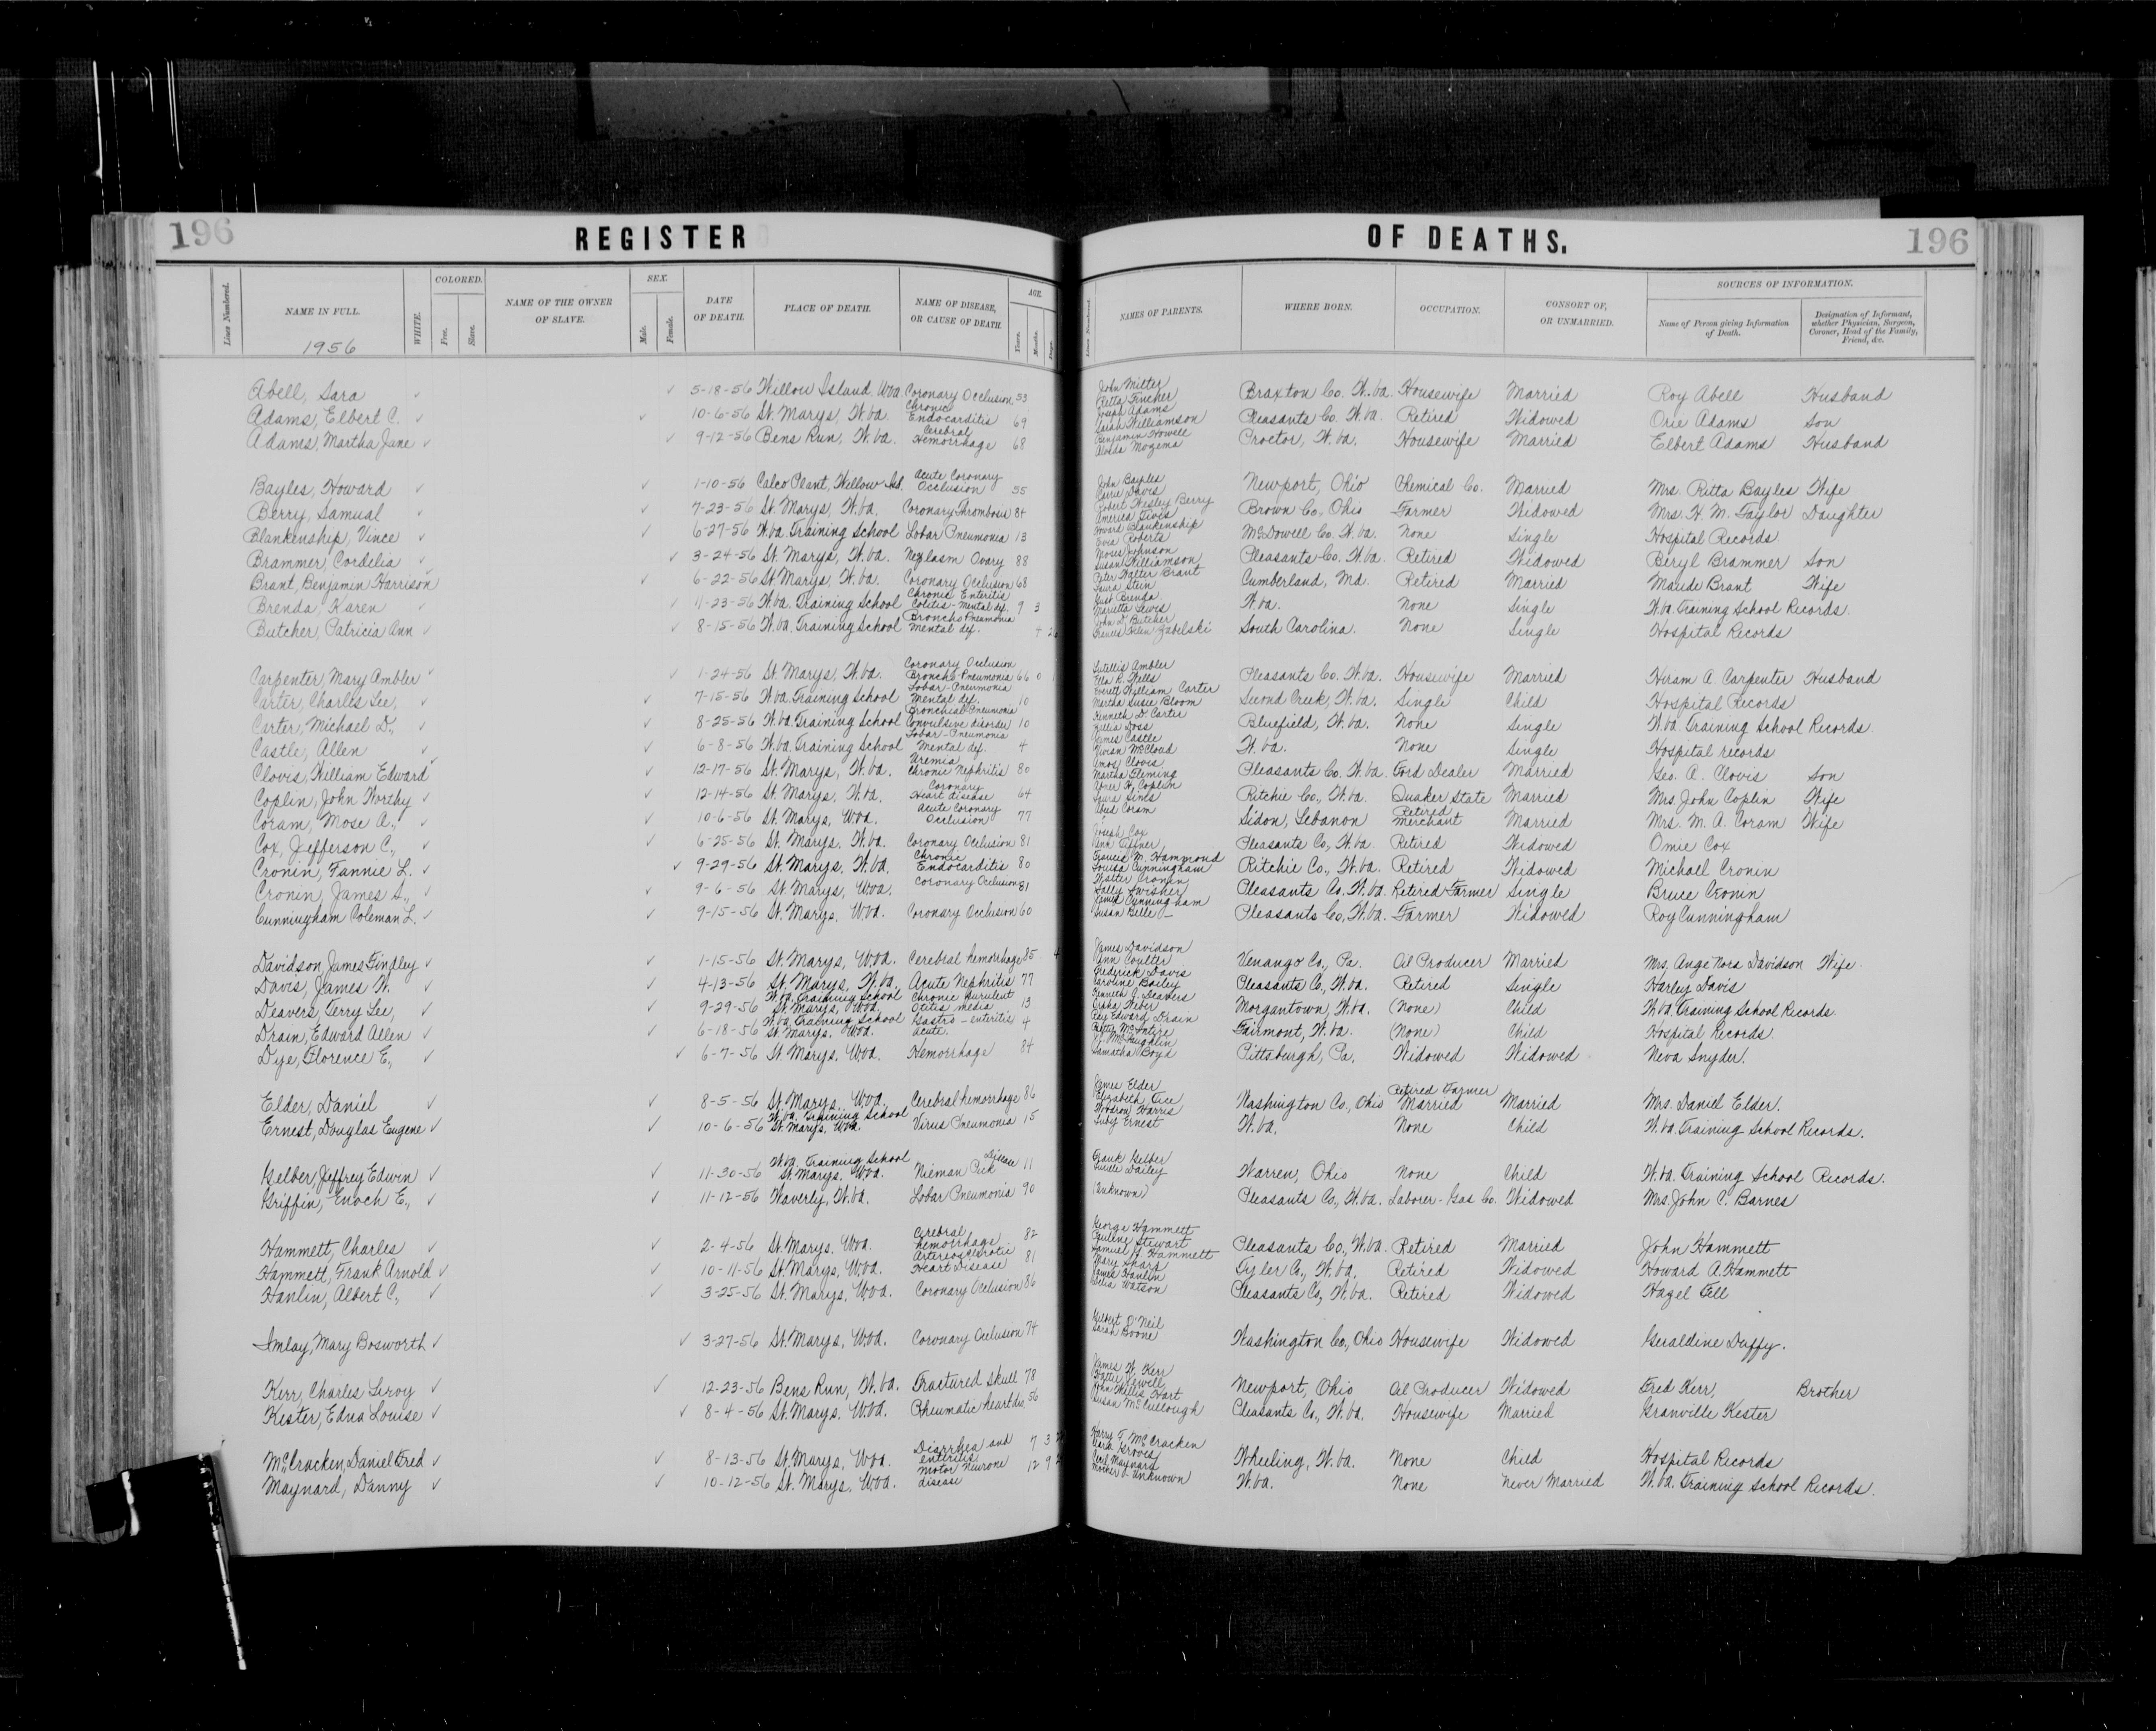 196 REGISTER OF DEATHS. 196
Lines Numbered. NAME IN FULL. WHITE. COLORED. Free. Slave. NAME OF THE OWNER OF SLAVE. SEX. Male. Female. DATE OF DEATH. PLACE OF DEATH. NAME OF DISEASE, OR CAUSE OF DEATH. AGE. Years. Months. Days. Lines Numbered. NAMES OF PARENTS. WHERE BORN. OCCUPATION. CONSORT OF, OR UNMARRIED. SOURCES OF INFORMATION. Name of Person giving Information of Death. Designation of Informant, whether Physician, Surgeon, Coroner, Head of the Family, Friend, &c.
1956
Abell, Sara ✓ ✓ 5-18-56 Willow Island, W.Va. Coronary Occlusion 53 John Milter Retta Fincher Braxton Co. W.Va. Housewife Married Roy Abell Husband
Adams, Elbert C. ✓ ✓ 10-6-56 St. Marys, W.Va. Chronic Endocarditis 69 Adams Sarah Williamson Pleasants Co. W.Va. Retired Widowed Orie Adams Son
Adams, Martha Jane ✓ ✓ 9-12-56 Bens Run, W.Va. Cerebral Hemorrhage 68 Benjamin Howell Mozema Proctor, W.Va. Housewife Married Elbert Adams Husband
Bayles, Howard ✓ ✓ 1-10-56 Calco Plant, Willow Isl. Acute Coronary Occlusion 55 John Bayles Carrie Davis Newport, Ohio Chemical Co. Married Mrs. Ritta Bayles Wife
Berry, Samual ✓ ✓ 7-23-56 St. Marys, W.Va. Coronary Thrombosis 84 Robert Wesley Berry America Brown Co., Ohio Farmer Widowed Mrs. H. M. Taylor Daughter
Blankenship, Vince ✓ ✓ 6-27-56 W.Va. Training School Lobar Pneumonia 13 Blankenship Roberts McDowell Co. W.Va. None Single Hospital Records
Brammer, Cordelia ✓ ✓ 3-24-56 St. Marys, W.Va. Neplasm Ovary 88 Johnson Susan Williamson Pleasants Co. W.Va. Retired Widowed Beryl Brammer Son
Brant, Benjamin Harrison ✓ 6-22-56 St. Marys, W.Va. Coronary Occlusion 68 Peter Walter Brant Laura Stein Cumberland, Md. Retired Married Maude Brant Wife
Brenda, Karen ✓ ✓ 11-23-56 W.Va. Training School Chronic Enteritis Colitis - Mental def. 9 3 Brenda Marietta Lewis W.Va. None Single W.Va. Training School Records.
Butcher, Patricia Ann ✓ ✓ 8-15-56 W.Va. Training School Broncho Pneumonia Mental def. 4 John D. Butcher Zabelski South Carolina. None Single Hospital Records
Carpenter, Mary Ambler ✓ ✓ 1-24-56 St. Marys, W.Va. Coronary Occlusion Broncho-Pneumonia 66 0 Ambler Ella R. Wells Pleasants Co. W.Va. Housewife Married Hiram A. Carpenter Husband
Carter, Charles Lee, ✓ ✓ 7-15-56 W.Va. Training School Lobar-Pneumonia Mental def. 10 Everett William Carter Martha Susie Bloom Second Creek, W.Va. Single Child Hospital Records
Carter, Michael D., ✓ ✓ 8-25-56 W.Va. Training School Bronchial Pneumonia Convulsive disorder 10 Kenneth D. Carter Doss Bluefield, W.Va. None Single W.Va. Training School Records.
Castle, Allen ✓ ✓ 6-8-56 W.Va. Training School Lobar-Pneumonia Mental def. 4 James Castle Vivian McCloud W.Va. None Single Hospital records
Clovis, William Edward ✓ ✓ 12-17-56 St. Marys, W.Va. Uremia Chronic Nephritis 80 Amos Clovis Martha Fleming Pleasants Co. W.Va. Ford Dealer Married Geo. A. Clovis Son
Coplin, John Worthy ✓ ✓ 12-14-56 St. Marys, W.Va. Coronary Heart disease 64 Abner H. Coplin Sims Ritchie Co., W.Va. Quaker State Married Mrs. John Coplin Wife
Coram, Mose A., ✓ ✓ 10-6-56 St. Marys, W.Va. Acute Coronary Occlusion 77 Coram Sidon, Lebanon Retired Merchant Married Mrs. M. A. Coram Wife
Cox, Jefferson C., ✓ ✓ 6-25-56 St. Marys, W.Va. Coronary Occlusion 81 Cox Ann Pleasants Co., W.Va. Retired Widowed Omie Cox
Cronin, Fannie L. ✓ ✓ 9-29-56 St. Marys, W.Va. Chronic Endocarditis 80 Francis M. Hammond Louisa Cunningham Ritchie Co., W.Va. Retired Widowed Michael Cronin
Cronin, James S., ✓ ✓ 9-6-56 St. Marys, W.Va. Coronary Occlusion 81 Walter Cronin Sally Swisher Pleasants Co. W.Va. Retired Farmer Single Bruce Cronin
Cunningham Coleman L. ✓ ✓ 9-15-56 St. Marys, W.Va. Coronary Occlusion 60 James Cunningham Susan Belle - Pleasants Co., W.Va. Farmer Widowed Roy Cunningham
Davidson, James Findley ✓ ✓ 1-15-56 St. Marys, W.Va. Cerebral hemorrhage 85 4 James Davidson Ann Coulter Venango Co., Pa. Oil Producer Married Mrs. Ange Nora Davidson Wife
Davis, James W. ✓ ✓ 4-13-56 St. Marys, W.Va. Acute Nephritis 77 Frederick Davis Caroline Bailey Pleasants Co., W.Va. Retired Single Harley Davis
Deavers, Terry Lee, ✓ ✓ 9-29-56 W.Va. Training School St. Marys, W.Va. Chronic Purulent Otitis media 13 Kenneth J. Deavers Weber Morgantown, W.Va. (None) Child W.Va. Training School Records.
Drain, Edward Allen ✓ ✓ 6-18-56 W.Va. Training School St. Marys, W.Va. Gastro-enteritis acute 4 Ray Edward Drain Betty McEntire Fairmont, W.Va. (None) Child Hospital Records.
Dye, Florence E., ✓ ✓ 6-7-56 St. Marys, W.Va. Hemorrhage 84 McLaughlin Samatha Boyd Pittsburgh, Pa. Widowed Widowed Neva Snyder.
Elder, Daniel ✓ ✓ 8-5-56 St. Marys, W.Va. Cerebral hemorrhage 86 James Elder Elizabeth Washington Co., Ohio Retired Farmer Married Married Mrs. Daniel Elder.
Ernest, Douglas Eugene ✓ ✓ 10-6-56 W.Va. Training School St. Marys, W.Va. Virus Pneumonia 15 Woodrow Harris Ernest W.Va. None Child W.Va. Training School Records.
Gelber, Jeffrey Edwin ✓ ✓ 11-30-56 W.Va. Training School St. Marys, W.Va. Nieman Pick Disease 11 Frank Gelber Lucille Dailey Warren, Ohio None Child W.Va. Training School Records.
Griffin, Enoch E., ✓ ✓ 11-12-56 Waverly, W.Va. Lobar Pneumonia 90 (Unknown) Pleasants Co., W.Va. Laborer-Gas Co. Widowed Mrs. John C. Barnes
Hammett, Charles ✓ ✓ 2-4-56 St. Marys, W.Va. Cerebral hemorrhage 82 George Hammett Pauline Stewart Pleasants Co., W.Va. Retired Married John Hammett
Hammett, Frank Arnold ✓ ✓ 10-11-56 St. Marys, W.Va. Arteriosclerotic Heart Disease 81 Samuel H. Hammett Mary Sharp Tyler Co., W.Va. Retired Widowed Howard A. Hammett
Hanlin, Albert C., ✓ ✓ 3-25-56 St. Marys, W.Va. Coronary Occlusion 86 James Hanlin Delia Watson Pleasants Co., W.Va. Retired Widowed Hazel Fell
Imlay, Mary Bosworth ✓ ✓ 3-27-56 St. Marys, W.Va. Coronary Occlusion 74 O'Neil Sarah Boone Washington Co., Ohio Housewife Widowed Geraldine Duffy.
Kerr, Charles Leroy ✓ ✓ 12-23-56 Bens Run, W.Va. Fractured Skull 78 James W. Kerr Jewell Newport, Ohio Oil Producer Widowed Fred Kerr, Brother
Kester, Edna Louise ✓ ✓ 8-4-56 St. Marys, W.Va. Rheumatic heart dis. 56 John Willis Hart Susan McCullough Pleasants Co., W.Va. Housewife Married Granville Kester
McCracken, Daniel Fred ✓ ✓ 8-13-56 St. Marys, W.Va. Diarrhea and enteritis 7 3 Harry T. McCracken Groves Wheeling, W.Va. None Child Hospital Records
Maynard, Danny ✓ ✓ 10-12-56 St. Marys, W.Va. Motor Neurone disease 12 9 Cecil Maynard Mother (Unknown) W.Va. None Never Married W.Va. Training School Records.